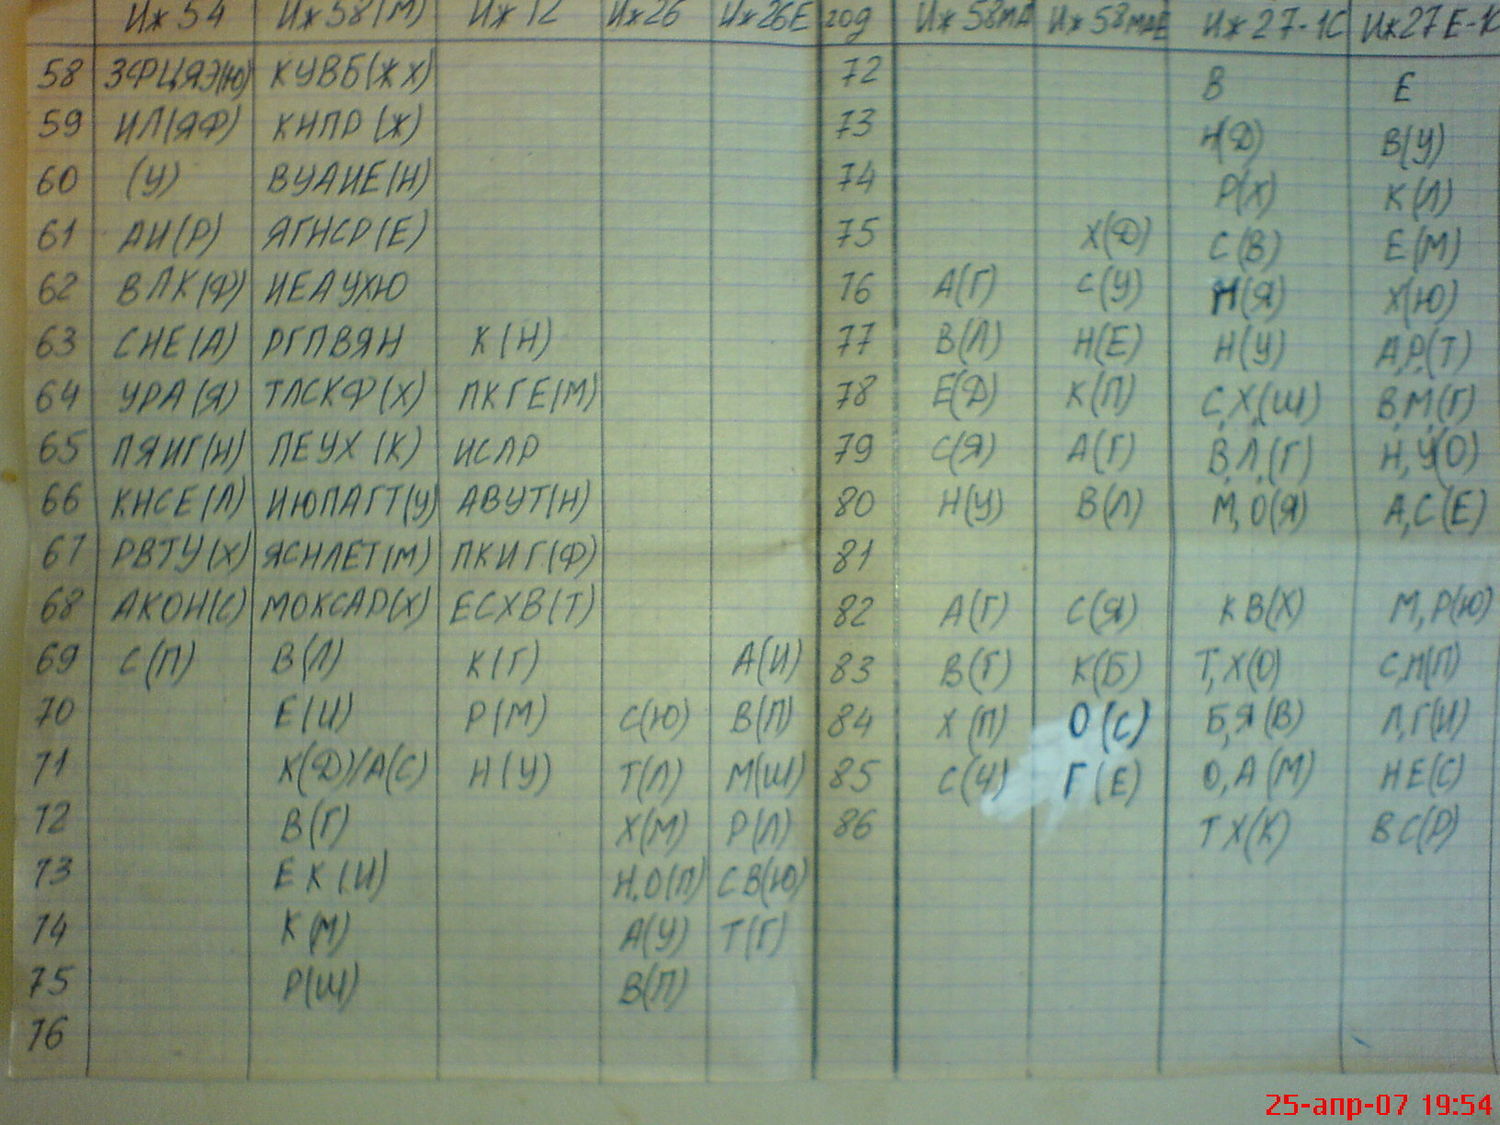 Иж 54 Иж 58(М) Иж 12 Иж 26 Иж 26Е год Иж 58МА Иж 58МАЕ Иж 27-1С Иж 27Е-1С
58 ЗФЦЯЭ(Ю) КУВБ(ЖХ) 72 В Е
59 ИЛ(ЯФ) КНПР(Ж) 73 Н(Д) В(У)
60 (У) ВУАИЕ(Н) 74 Р(Х) К(Л)
61 АИ(Р) ЯГНСР(Е) 75 Х(Ф) С(В) Е(М)
62 ВЛК(Ф) ИЕАУХЮ 76 А(Г) С(У) М(Я) Х(Ю)
63 СНЕ(А) РГПВЯН К(Н) 77 В(Л) Н(Е) Н(У) А,Р,(Т)
64 УРА(Я) ТЛСКФ(Х) ПКГЕ(М) 78 Е(Д) К(П) С,Х,(Ш) В,М,(Г)
65 ПЯИГ(Н) ПЕУХ(К) ИСЛР 79 С(Я) А(Г) В,Л,(Г) Н,У(О)
66 КНСЕ(Л) ИЮПАГТ(У) АВУТ(Н) 80 Н(У) В(Л) М,О(Я) А,С(Е)
67 РВТУ(Х) ЯСНЛЕТ(М) ПКИГ(Ф) 81
68 АКОН(С) МОКСАР(Х) ЕСХВ(Т) 82 А(Г) С(Я) КВ(Х) М,Р(Ю)
69 С(П) В(Л) К(Г) А(И) 83 В(Г) К(Б) Т,Х(О) С,Н(П)
70 Е(И) Р(М) С(Ю) В(П) 84 Х(П) О(С) Б,Я(В) Л,Г(И)
71 Х(Д)/А(С) Н(У) Т(Л) М(Ш) 85 С(Ч) Г(Е) О,А(М) НЕ(С)
72 В(Г) Х(М) Р(Л) 86 ТХ(К) ВС(Р)
73 ЕК(И) Н,О(П) СВ(Ю)
74 К(М) А(У) Т(Г)
75 Р(Ш) В(П)
76
25-апр-07 19:54